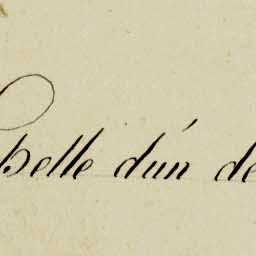 belle d'un de